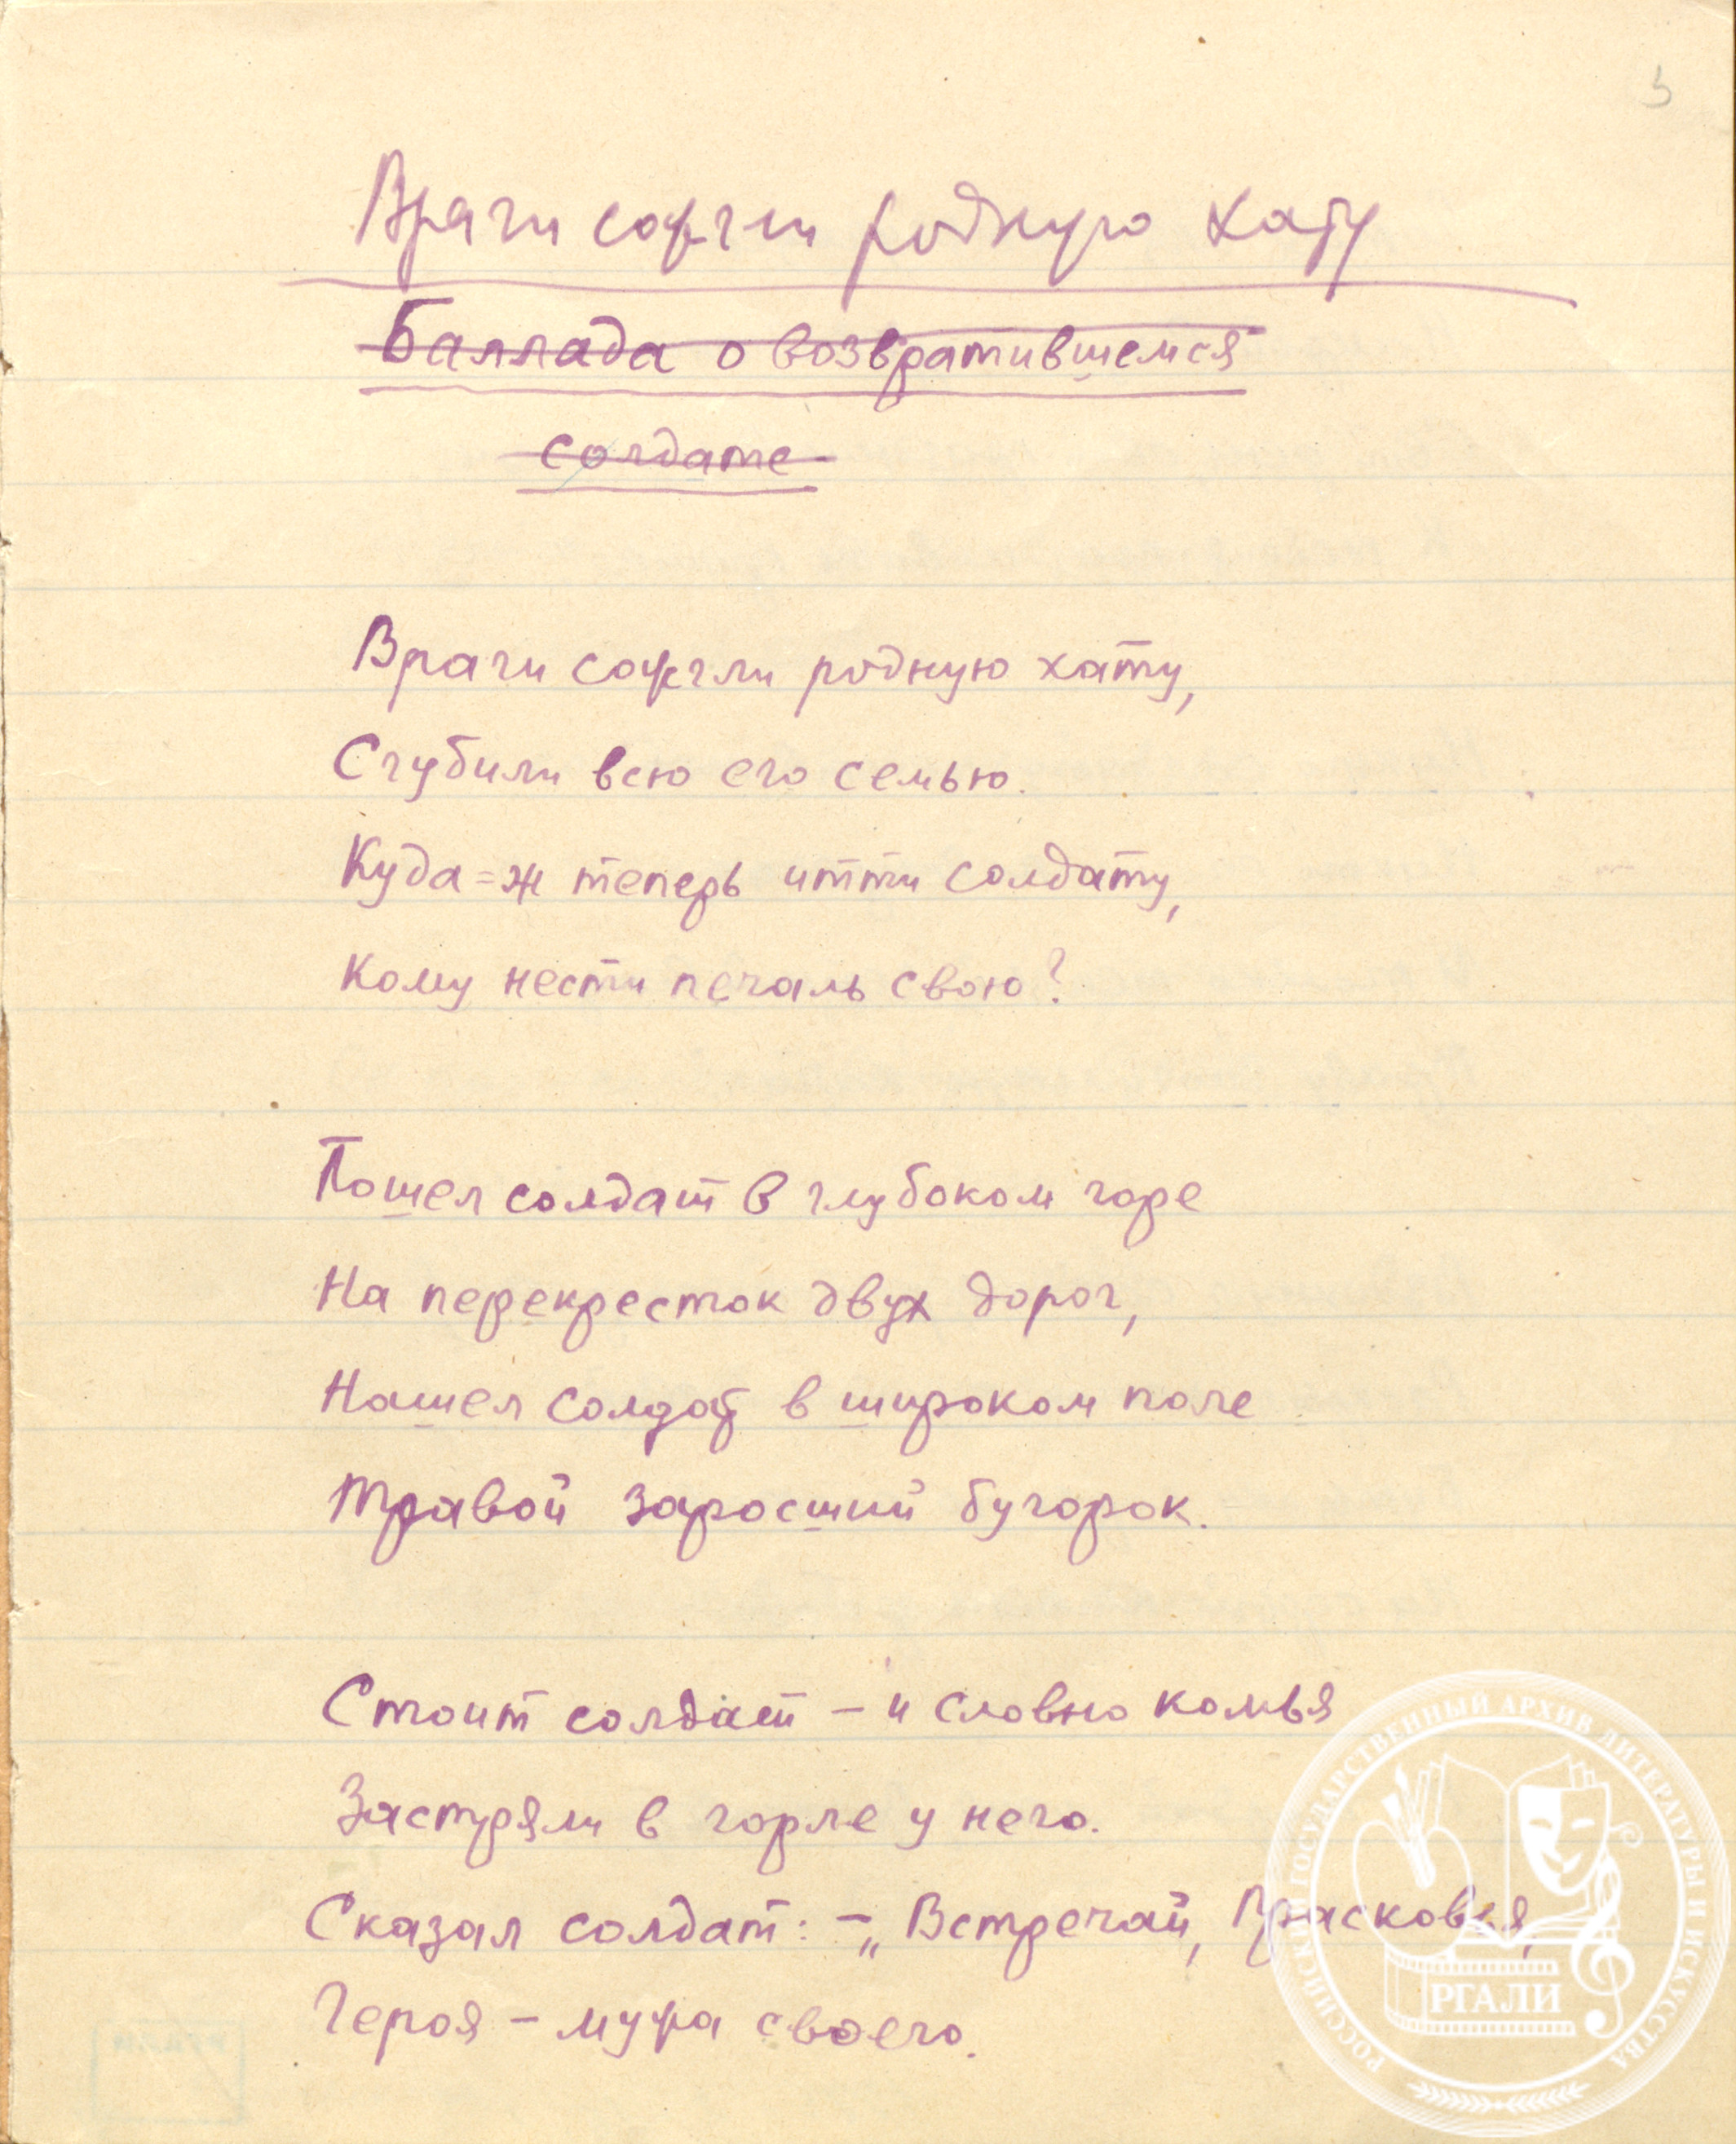 3
Враги сожгли родную хату
Баллада о возвратившемся
солдате
Враги сожгли родную хату,
Сгубили всю его семью.
Куда=ж теперь итти солдату,
Кому нести печаль свою?
Пошел солдат в глубоком горе
На перекресток двух дорог,
Нашел солдат в широком поле
Травой заросший бугорок.
Стоит солдат – и словно комья
Застряли в горле у него.
Сказал солдат: – „Встречай, Прасковья,
Героя – мужа своего.
РОССИЙСКИЙ ГОСУДАРСТВЕННЫЙ АРХИВ ЛИТЕРАТУРЫ И ИСКУССТВА
РГАЛИ